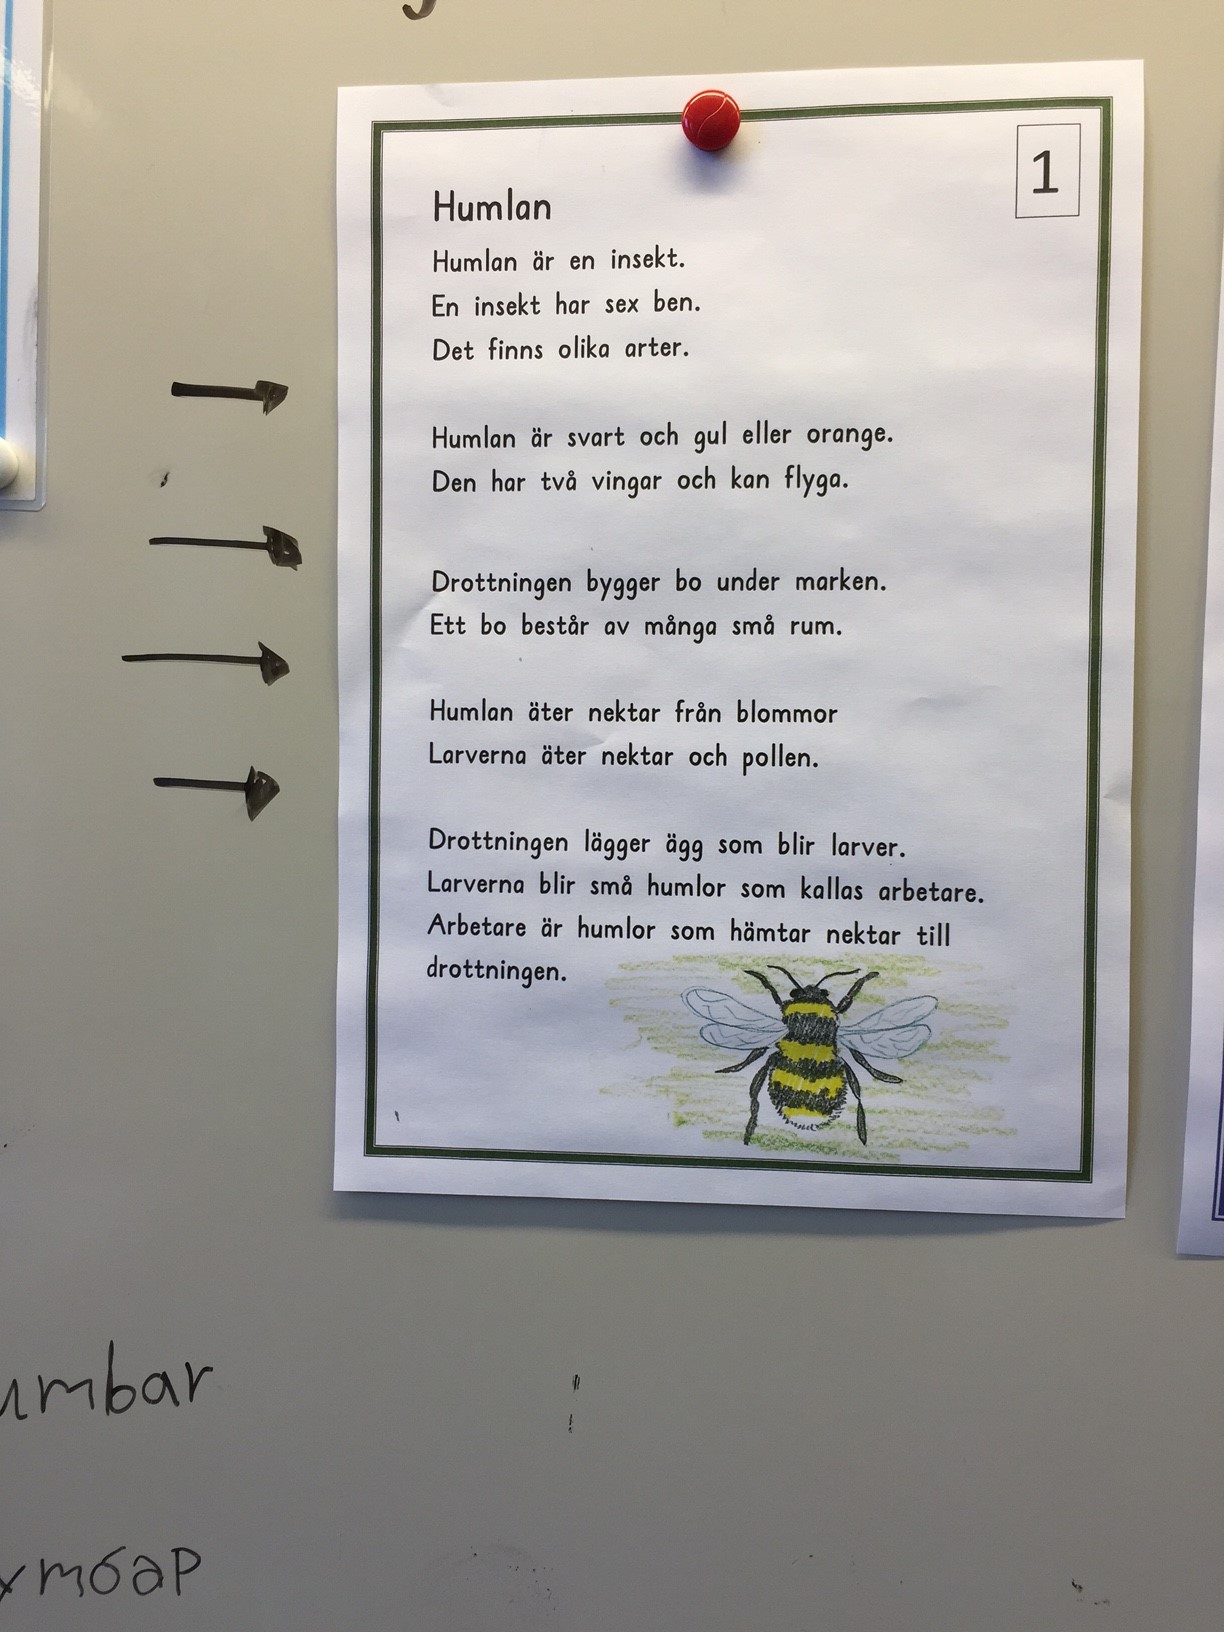 1
Humlan
Humlan är en insekt.
En insekt har sex ben.
Det finns olika arter.
Humlan är svart och gul eller orange.
Den har två vingar och kan flyga.
Drottningen bygger bo under marken.
Ett bo består av många små rum.
Humlan äter nektar från blommor
Larverna äter nektar och pollen.
Drottningen lägger ägg som blir larver.
Larverna blir små humlor som kallas arbetare.
Arbetare är humlor som hämtar nektar till
drottningen.